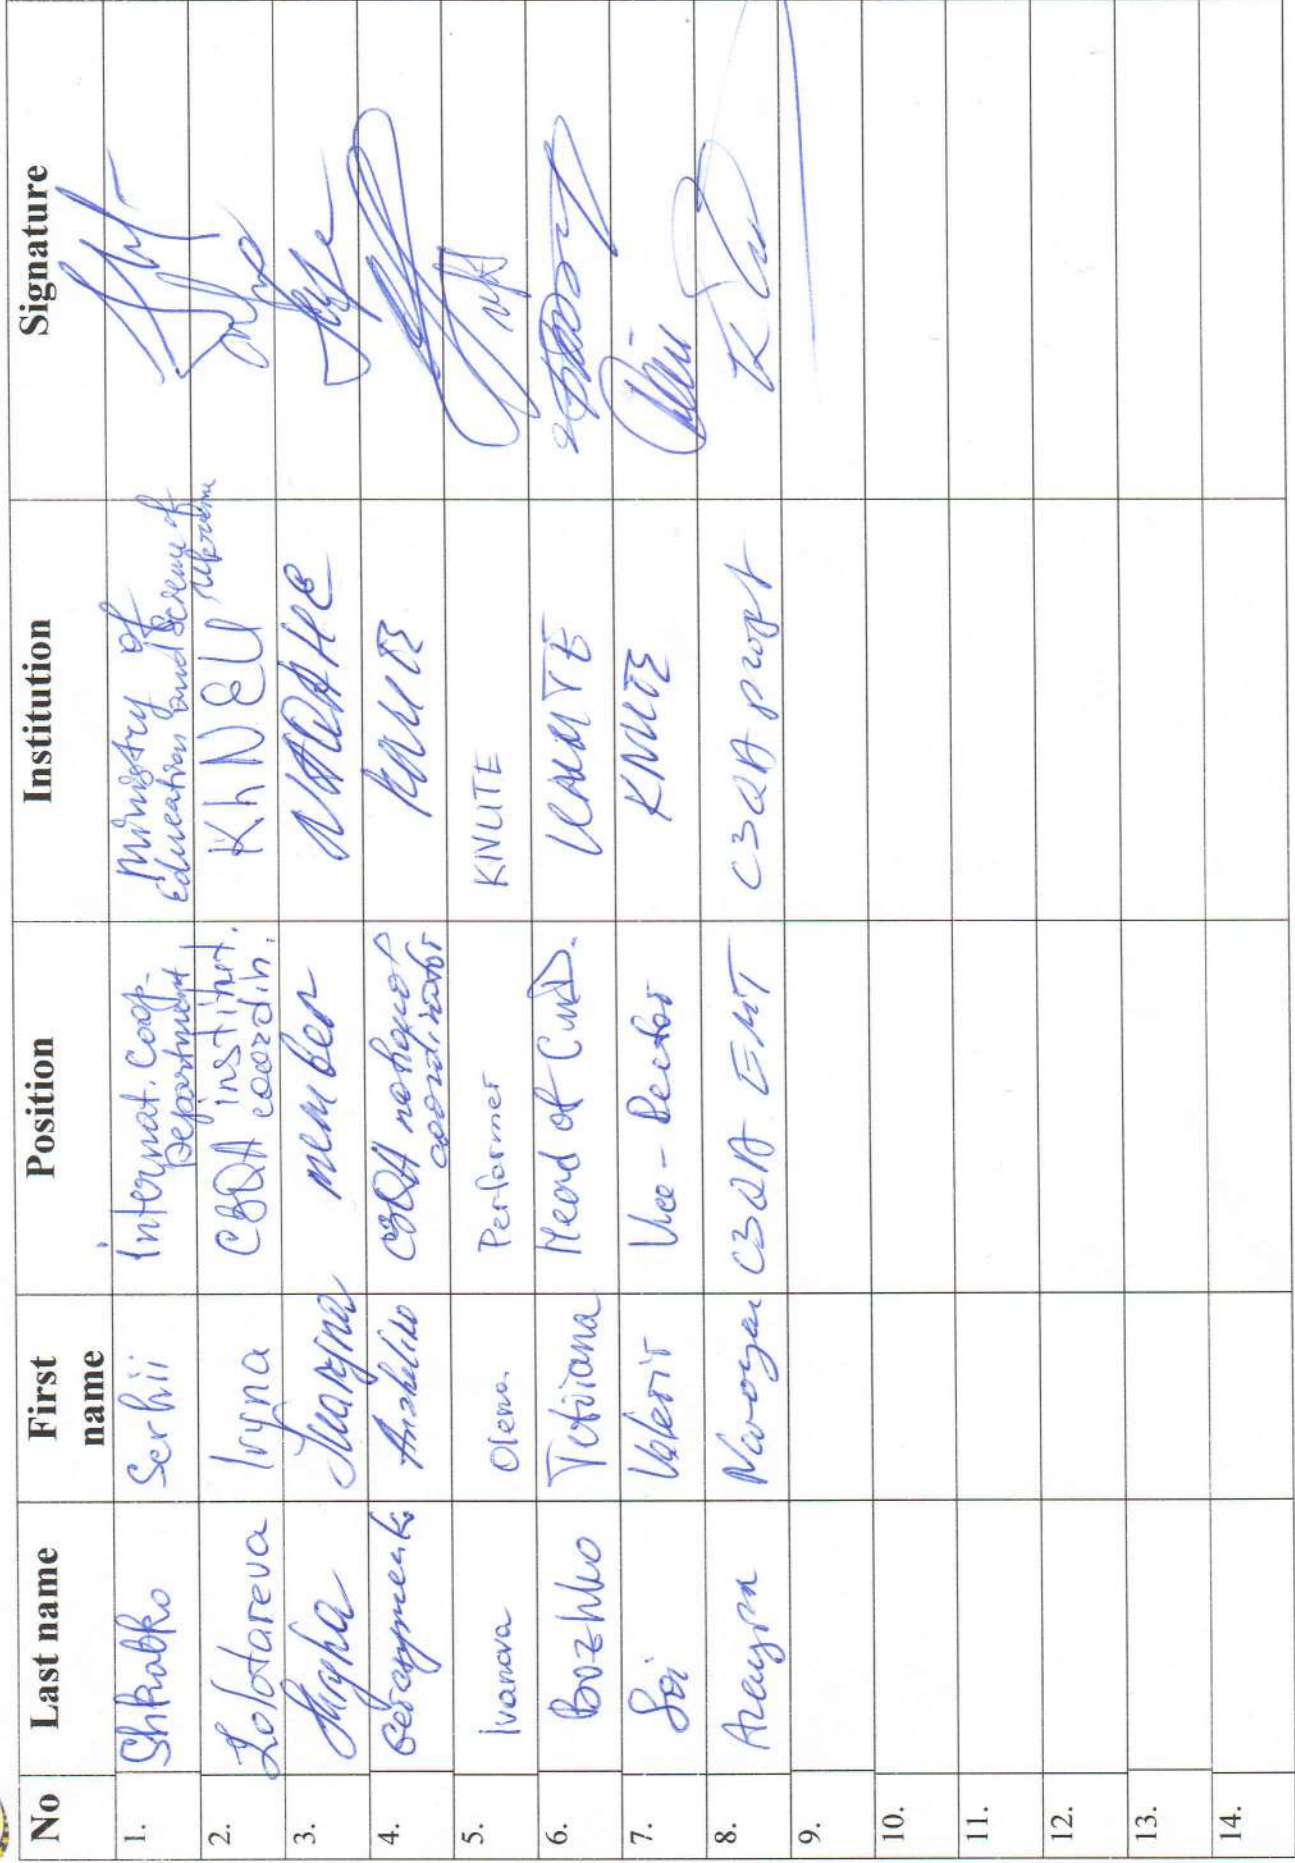 No Last name First name Position Institution Signature
1. Shkabko Serhii Internat. Coop. Department Ministry of Education and Science of Ukraine
2. Zolotareva Iryna C3QA institut. coordin. KhNEU
3. member NAQAHE
4. Anzhelika C3QA national coordinator KNUTE
5. Ivanova Olena Performer KNUTE
6. Bozhko Tetiana Head of KNUTE
7. Valerii Vice-Rector KNUTE
8. C3QA EMT C3QA
9.
10.
11.
12.
13.
14.